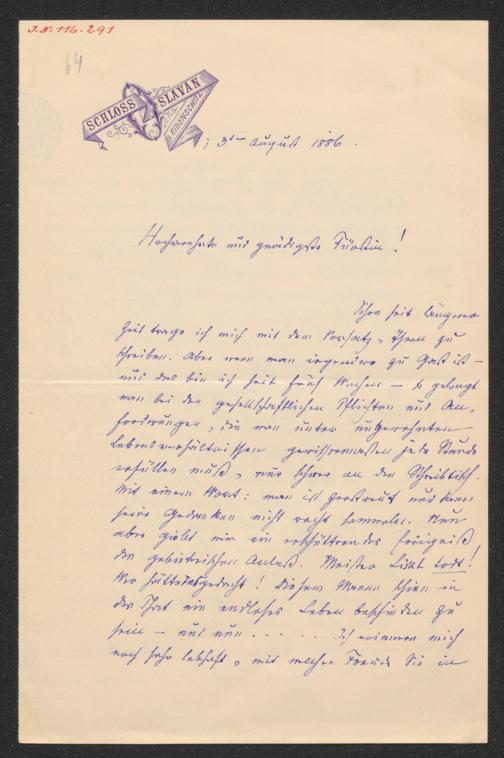 J.N. 116.291
64
SCHLOSS OSLAVAN
B. EIBENSCHITZ
; 3ten August 1886.
Hochverehrte und gnädigste Fürstin!
Schon seit längerer
Zeit trage ich mich mit dem Vorsatz, Ihnen zu
schreiben. Aber wenn man irgendwo zu Gast ist –
und das bin ich seit fünf Wochen – so gelangt
man bei den gesellschaftlichen Pflichten und An-
forderungen, die man unter ungewohnten
Lebensverhältnissen gewissermaßen jede Stunde
erfüllen muß, nur schwer an den Schreibtisch.
Mit einem Wort: man ist zerstreut und kann
seine Gedanken nicht recht sammeln. Nun
aber giebt mir ein erschütterndes Ereigniß
den gebieterischen Anlaß. Meister Liszt todt!
Wer hätte das gedacht! Diesem Manne schien in
der That ein endloses Leben beschieden zu
sein – und nun . . . . . Ich erinnere mich
noch sehr lebhaft, mit welcher Freude Sie in